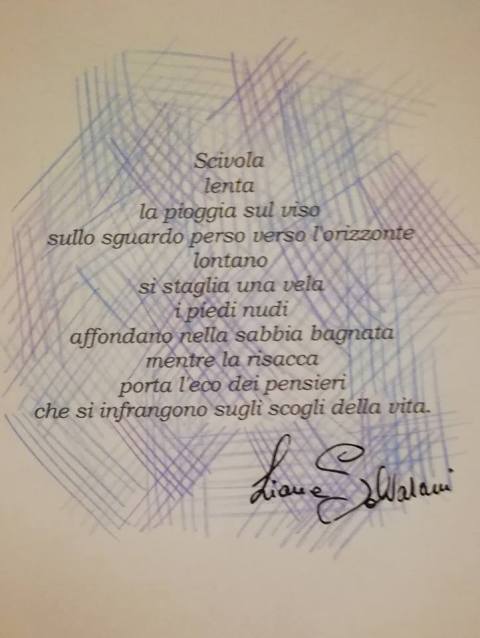 Scivola
lenta
la pioggia sul viso
sullo sguardo perso verso l'orizzonte
lontano
si staglia una vela
i piedi nudi
affondano nella sabbia bagnata
mentre la risacca
porta l'eco dei pensieri
che si infrangono sugli scogli della vita.
Liana